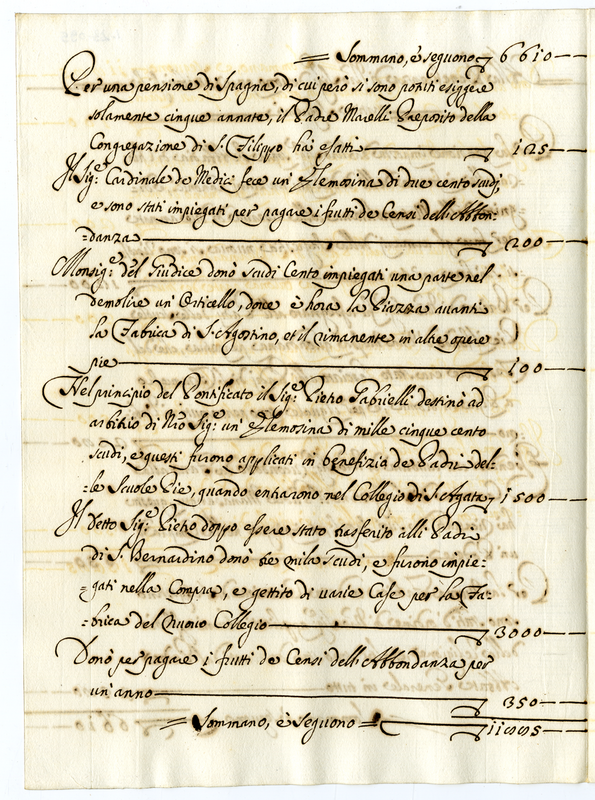 = Sommano, è seguono 6610
Per una pensione di Spagna, di cui però si sono potuti esiggere
solamente cinque annate, il Padre Marelli Preposito della
Congregazione di S. Filippo hà esatti 125
Il Sig.r Cardinale de Medici fece un' Elemosina di due cento scudi,
e sono stati impiegati per pagare i frutti de Censi dell'Abbon-
=danza 200
Monsig.r del Giudice donò scudi Cento impiegati una parte nel
demolire un' Orticello, dove è hora la Piazza avanti
la Fabrica di S. Agostino, et il rimanente in altre opere
pie 100
Nel principio del Pontificato il Sig.r Pietro Gabrielli destinò ad
arbitrio di Nro Sig.r un' Elemosina di mille cinque cento
scudi, e questi furono applicati in benefizio de Padri del-
=le Scuole Pie, quando entrarono nel Collegio di S. Agata 1500
Il detto Sig.r Pietro doppo essere stato trasferito alli Padri
di S. Bernardino donò tre mila scudi, e furono impie-
=gati nella Compra, e gettito di varie Case per la Fa-
=brica del nuovo Collegio 3000
Donò per pagare i frutti de Censi dell'Abbondanza per
un'anno 350
= Sommano, è seguono =